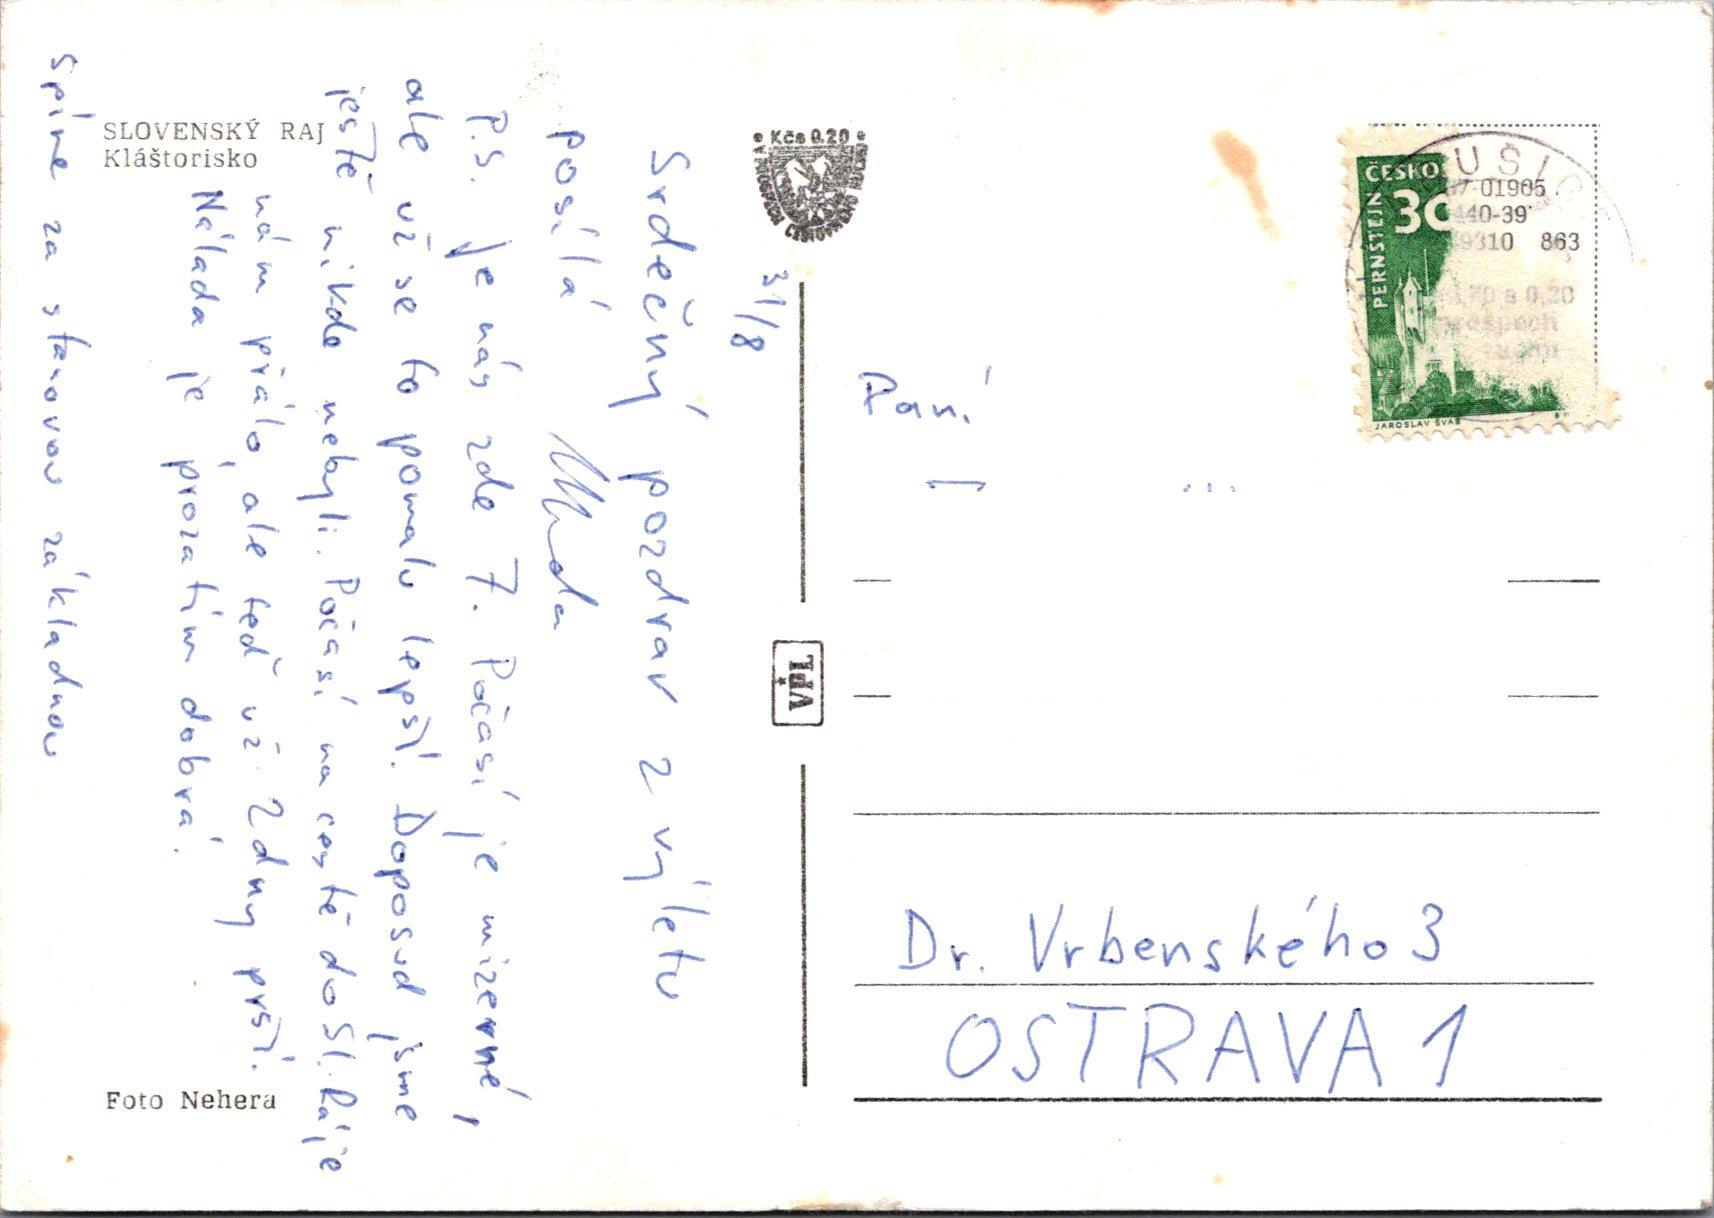 SLOVENSKÝ RAJ
Kláštorisko
31/8
Srdečný pozdrav z výletu
posílá
P.S. Je nás zde 7. Počasí je mizerné,
ale už se to pomalu lepší. Doposud jsme
ještě nikde nebyli. Počasí na cestě do Sl. Ráje
nám přálo, ale teď už 2 dny prší.
Nálada je prozatím dobrá.
Spíme za stanovou základnou
Foto Nehera
Kčs 0.20
VPL
ČESKO
30
PERNŠTEJN
JAROSLAV ŠVAB
01905
440-39
9310 863
a 0,20
Paní
Dr. Vrbenského 3
OSTRAVA 1